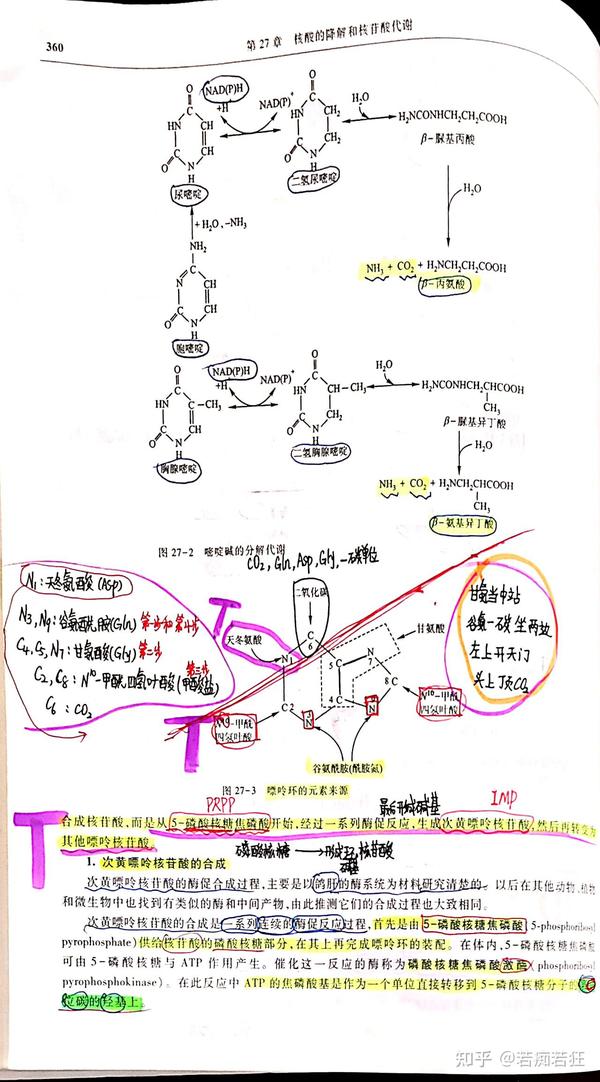 360
第 27 章 核酸的降解和核苷酸代谢
NAD(P)H
+H⁺
NAD(P)⁺
H₂O
H₂NCONHCH₂CH₂COOH
β-脲基丙酸
尿嘧啶
二氢尿嘧啶
+H₂O, -NH₃
H₂O
NH₂
NH₃ + CO₂ + H₂NCH₂CH₂COOH
β-丙氨酸
胞嘧啶
NAD(P)H
+H
NAD(P)⁺
H₂O
H₂NCONHCH₂CHCOOH
CH₃
β-脲基异丁酸
H₂O
胸腺嘧啶
二氢胸腺嘧啶
NH₃ + CO₂ + H₂NCH₂CHCOOH
CH₃
β-氨基异丁酸
图 27-2 嘧啶碱的分解代谢
CO₂, Gln, Asp, Gly, 一碳单位
N₁: 天冬氨酸 (Asp)
N3, N9: 谷氨酰胺(Gln)
C4, C5, N7: 甘氨酸(Gly) 第二步
C2, C8: N¹⁰-甲酰四氢叶酸 (甲酸盐)
C6: CO₂
二氧化碳
天冬氨酸
甘氨酸
N¹⁰-甲酰
四氢叶酸
N¹⁰-甲酰
四氢叶酸
谷氨酰胺(酰胺氮)
甘氨当中站
谷氨一碳坐两边
左上开天门
头上顶CO₂
图 27-3 嘌呤环的元素来源
PRPP
最后形成碱基
IMP
合成核苷酸,而是从 5-磷酸核糖焦磷酸开始,经过一系列酶促反应,生成次黄嘌呤核苷酸,然后再转变为
其他嘌呤核苷酸。
磷酸核糖 → 形成碱基 核苷酸
1. 次黄嘌呤核苷酸的合成
次黄嘌呤核苷酸的酶促合成过程,主要是以鸽肝的酶系统为材料研究清楚的。以后在其他动物、植物
和微生物中也找到有类似的酶和中间产物,由此推测它们的合成过程也大致相同。
次黄嘌呤核苷酸的合成是一系列连续的酶促反应过程,首先是由 5-磷酸核糖焦磷酸(5-phosphoribosyl
pyrophosphate)供给核苷酸的磷酸核糖部分,在其上再完成嘌呤环的装配。在体内,5-磷酸核糖焦磷酸
可由 5-磷酸核糖与 ATP 作用产生。催化这一反应的酶称为磷酸核糖焦磷酸激酶(phosphoribosyl
pyrophosphokinase)。在此反应中 ATP 的焦磷酸基是作为一个单位直接转移到 5-磷酸核糖分子的
位碳的羟基上。
知乎 @若痴若狂